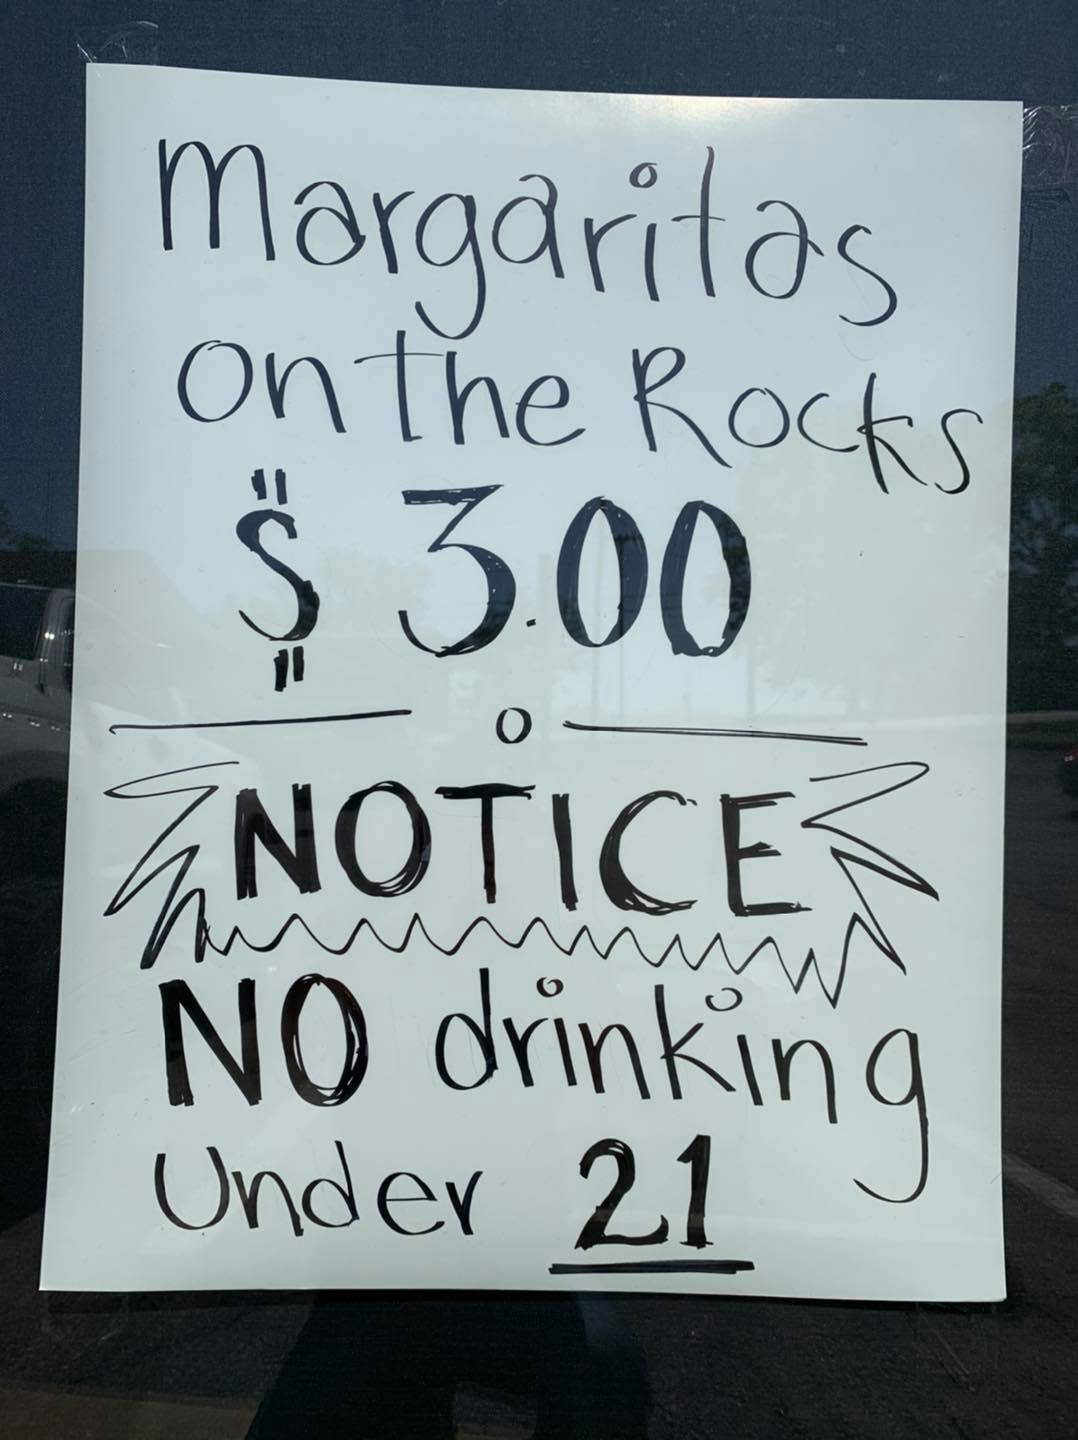 Margaritas
on the Rocks
$ 3.00
NOTICE
NO drinking
Under 21